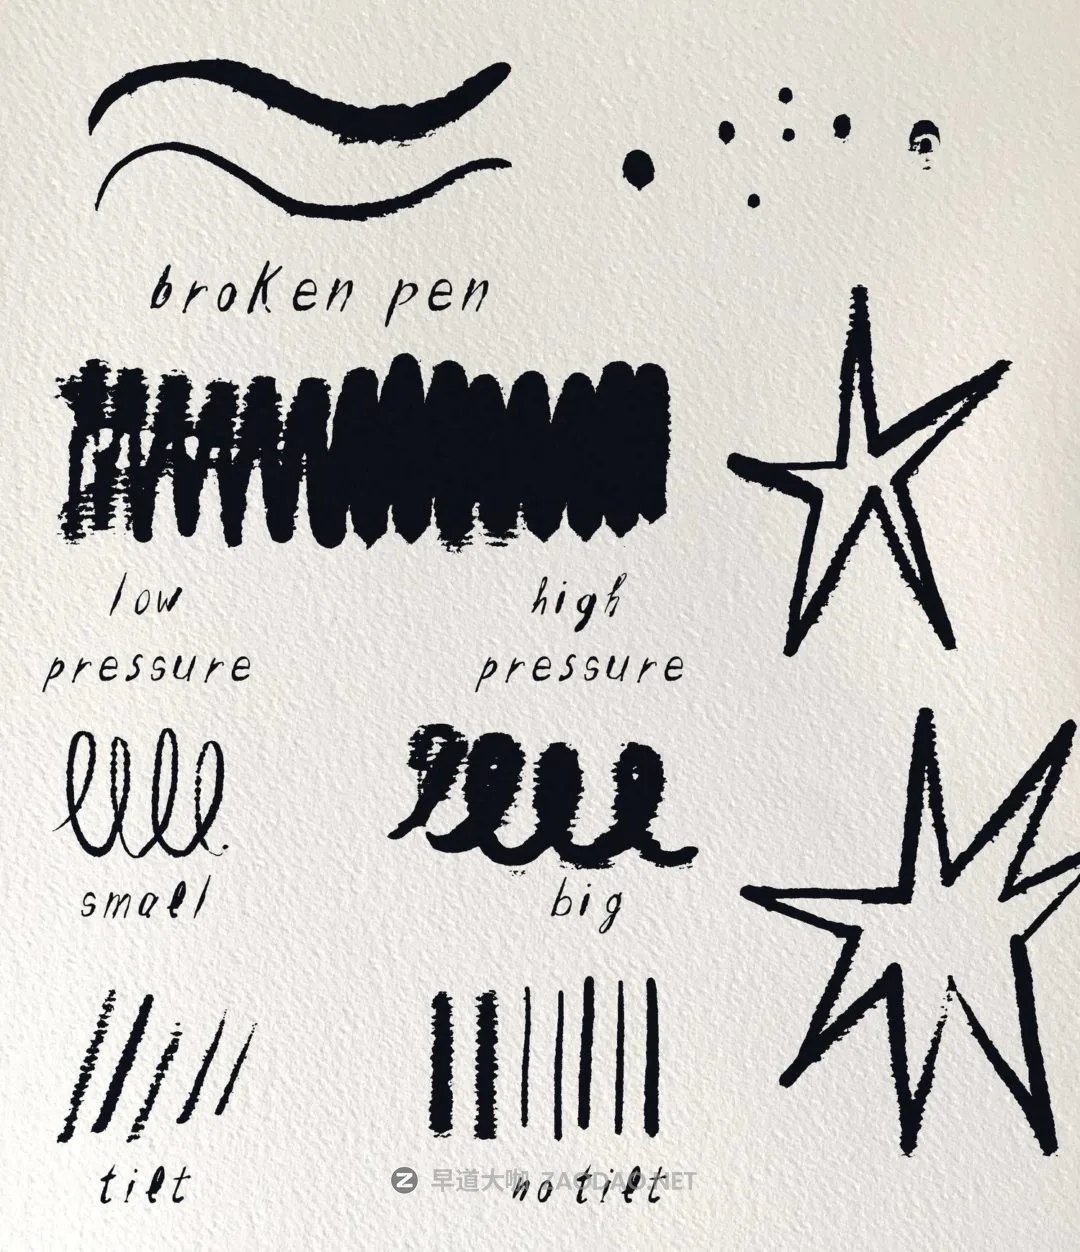 broken pen
low
pressure
high
pressure
small
big
tilt
no tilt
早道大咖 ZAODAO.NET